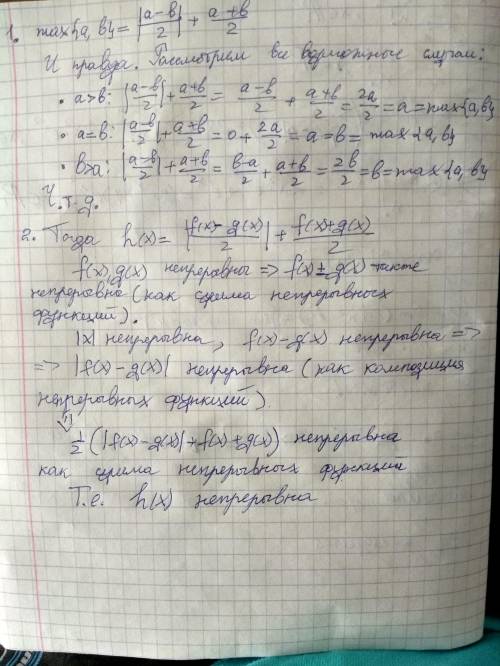 1. max{a, b} = |a-b/2| + a+b/2
И правда. Рассмотрим все возможные случаи:
• a>b: |a-b/2| + a+b/2 = a-b/2 + a+b/2 = 2a/2 = a = max{a, b}
• a=b: |a-b/2| + a+b/2 = 0 + 2a/2 = a = b = max{a, b}
• b>a: |a-b/2| + a+b/2 = b-a/2 + a+b/2 = 2b/2 = b = max{a, b}
Ч.т.д.
2. Тогда h(x) = |f(x)-g(x)/2| + f(x)+g(x)/2
f(x), g(x) непрерывны => f(x) ± g(x) также
непрерывна (как сумма непрерывных
функций).
|x| непрерывна, f(x) - g(x) непрерывна =>
=> |f(x) - g(x)| непрерывна (как композиция
непрерывных функций).
⇓
1/2 (|f(x) - g(x)| + f(x) + g(x)) непрерывна
как сумма непрерывных функций
Т.е. h(x) непрерывна